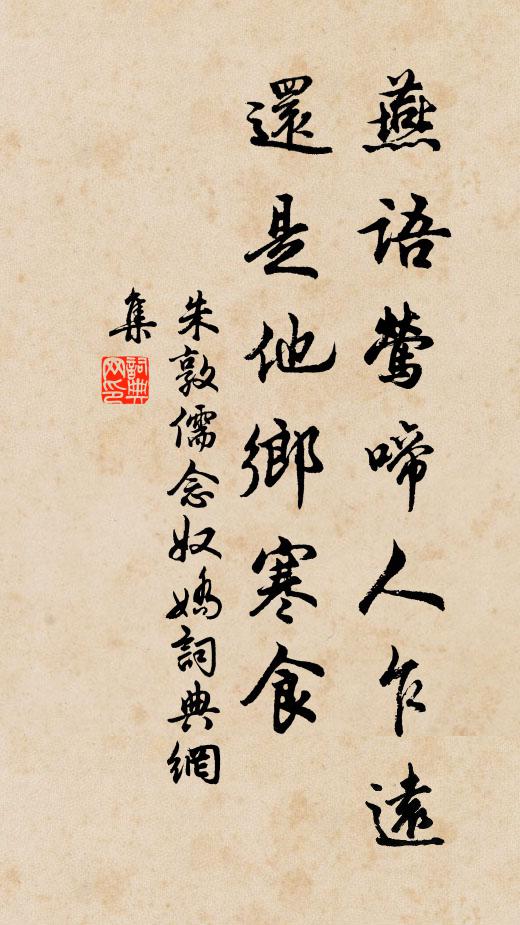 燕語鶯啼人乍遠
還是他鄉寒食
朱敦儒念奴嬌詞典網
集
詞典網印